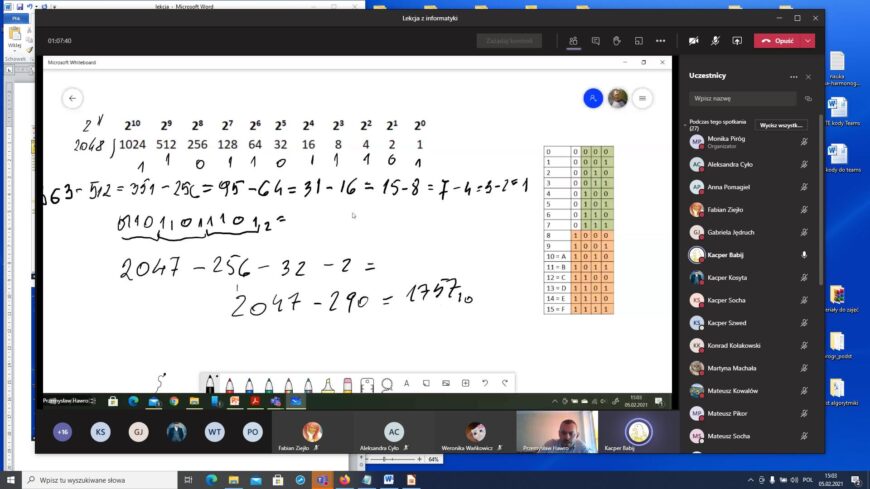 lekcja - Microsoft Word
Plik
Wklej
Schowek
Lekcja z informatyki
01:07:40
Zażądaj kontroli
Opuść
Microsoft Whiteboard
2^11 2^10 2^9 2^8 2^7 2^6 2^5 2^4 2^3 2^2 2^1 2^0
2048 1024 512 256 128 64 32 16 8 4 2 1
1 1 0 1 1 0 1 1 1 0 1
63 - 512 = 351 - 256 = 95 - 64 = 31 - 16 = 15 - 8 = 7 - 4 = 3 - 2 = 1
2047 - 256 - 32 - 2 =
2047 - 290 = 1757₁₀
0 0 0 0 0
1 0 0 0 1
2 0 0 1 0
3 0 0 1 1
4 0 1 0 0
5 0 1 0 1
6 0 1 1 0
7 0 1 1 1
8 1 0 0 0
9 1 0 0 1
10 = A 1 0 1 0
11 = B 1 0 1 1
12 = C 1 1 0 0
13 = D 1 1 0 1
14 = E 1 1 1 0
15 = F 1 1 1 1
Przemysław Hawro
15:03
05.02.2021
Uczestnicy
Wpisz nazwę
Podczas tego spotkania (27)
Wycisz wszystk...
MP Monika Piróg
Organizator
AC Aleksandra Cyło
AP Anna Pomagiel
Fabian Ziejło
GJ Gabriela Jędruch
Kacper Babij
KK Kacper Kosyta
KS Kacper Socha
KS Kacper Szwed
KK Konrad Kołakowski
MM Martyna Machała
MK Mateusz Kowalów
MP Mateusz Pikor
MS Mateusz Socha
+16
KS
GJ
WT
PO
Fabian Ziejło
AC
Aleksandra Cyło
Weronika Wańkowicz
Przemysław Hawro
Kacper Babij
64%
nauka
TE kody Teams
kody do Teams
Wpisz tu wyszukiwane słowa
POL
15:03
05.02.2021